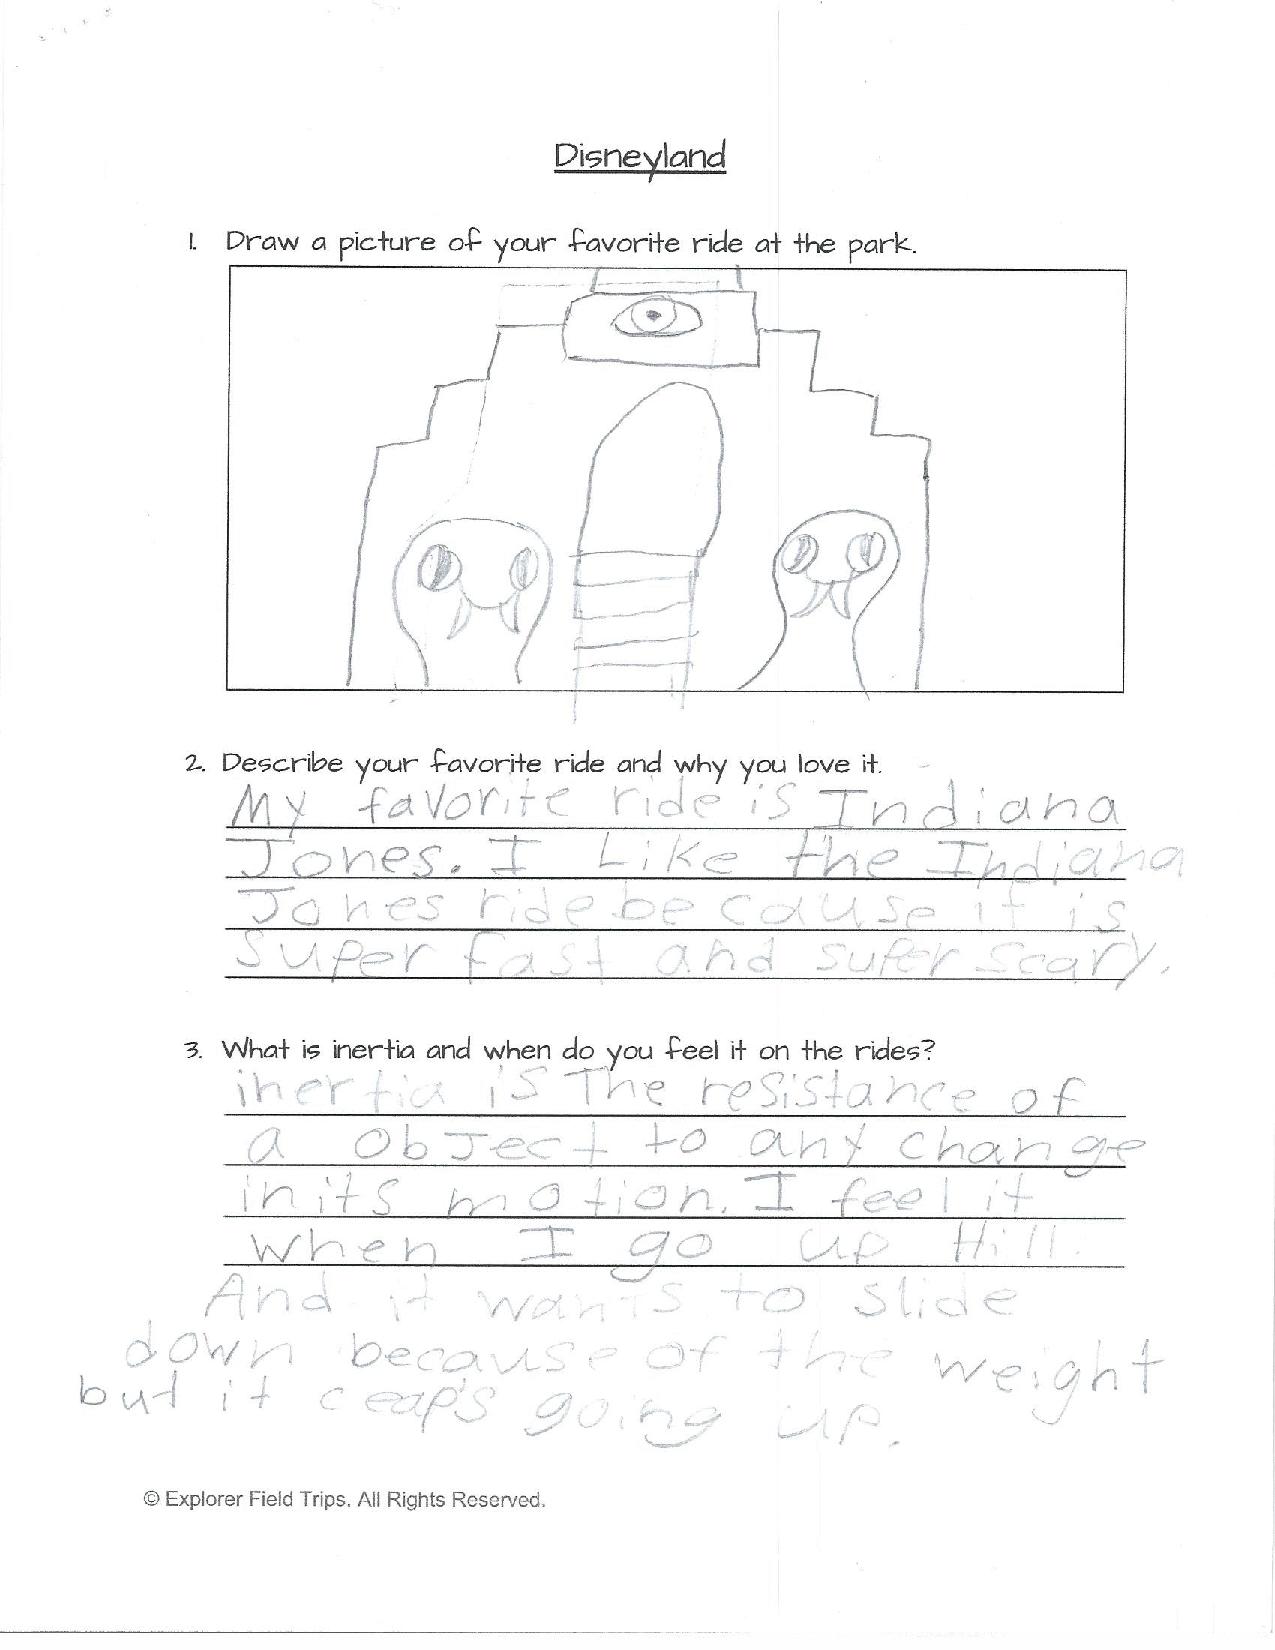 Disneyland
1. Draw a picture of your favorite ride at the park.
2. Describe your favorite ride and why you love it.
My favorite ride is Indiana
Jones. I Like the Indiana
Jones ride because it is
super fast and super scary.
3. What is inertia and when do you feel it on the rides?
inertia is The resistance of
a object to any change
in its motion. I feel it
when I go up Hill.
And it wants to slide
down because of the weight
but it ceaps going up.
© Explorer Field Trips. All Rights Reserved.